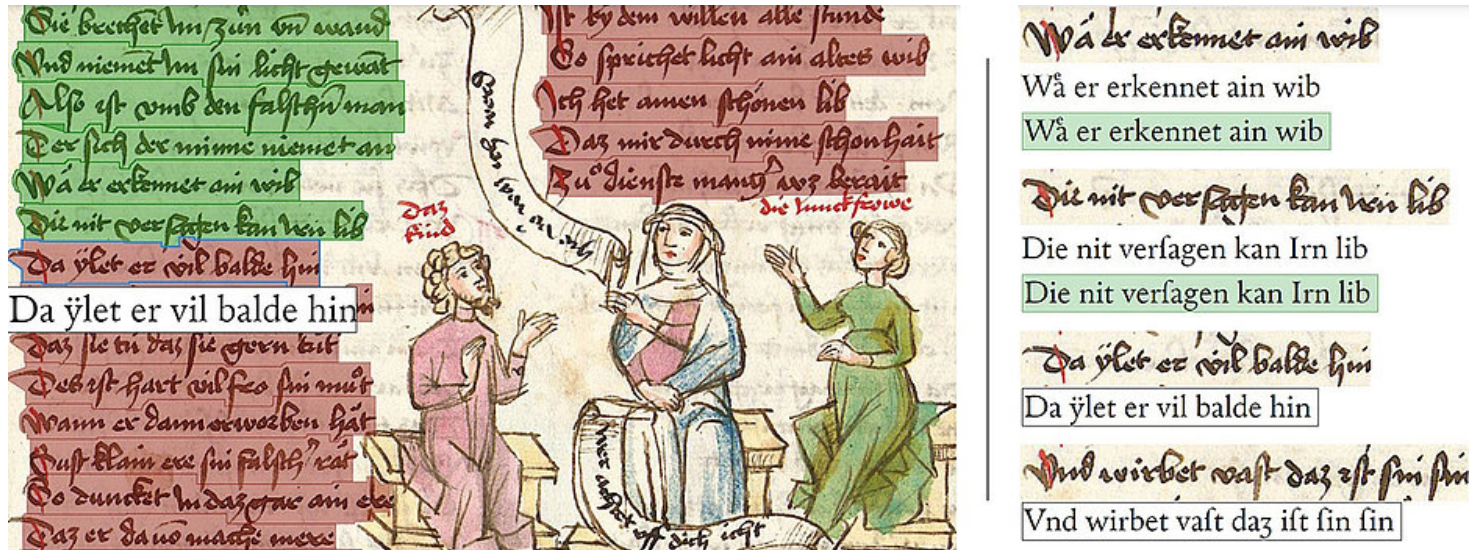 Die brechet Im zün vn̄ wand
Vnd niemet Im ſin licht gewāt
Alſo iſt vmb den falſchn̄ man
Der ſich der minne niemet an
Wͤa er erkennet ain wib
Die nit verſagen kan Irn lib
Da ÿlet er vil balde hin
Da ÿlet er vil balde hin
Daʒ ſie tů daʒ ſie gern tůt
Des iſt hart vil fro ſin můt
Wann er dann erworben hat
Suſt klain ere ſin falſch' rat
So duncket In daʒ gar ain ere
Daʒ er dauō mache mere
Iſt by dem willen alle ſtunde
So ſprichet licht ain altes wib
Ich het ainen ſchönen lib
Daʒ mir durch mine ſchonhait
Zů dienſte mang' wʒ berait
daʒ
kind
die Iunckfrowe
vff dich icht
Wͤa er erkennet ain wib
Wͤa er erkennet ain wib
Wͤa er erkennet ain wib
Die nit verſagen kan Irn lib
Die nit verſagen kan Irn lib
Die nit verſagen kan Irn lib
Da ÿlet er vil balde hin
Da ÿlet er vil balde hin
Vnd wirbet vaſt daʒ iſt ſin ſin
Vnd wirbet vaſt daʒ iſt ſin ſin